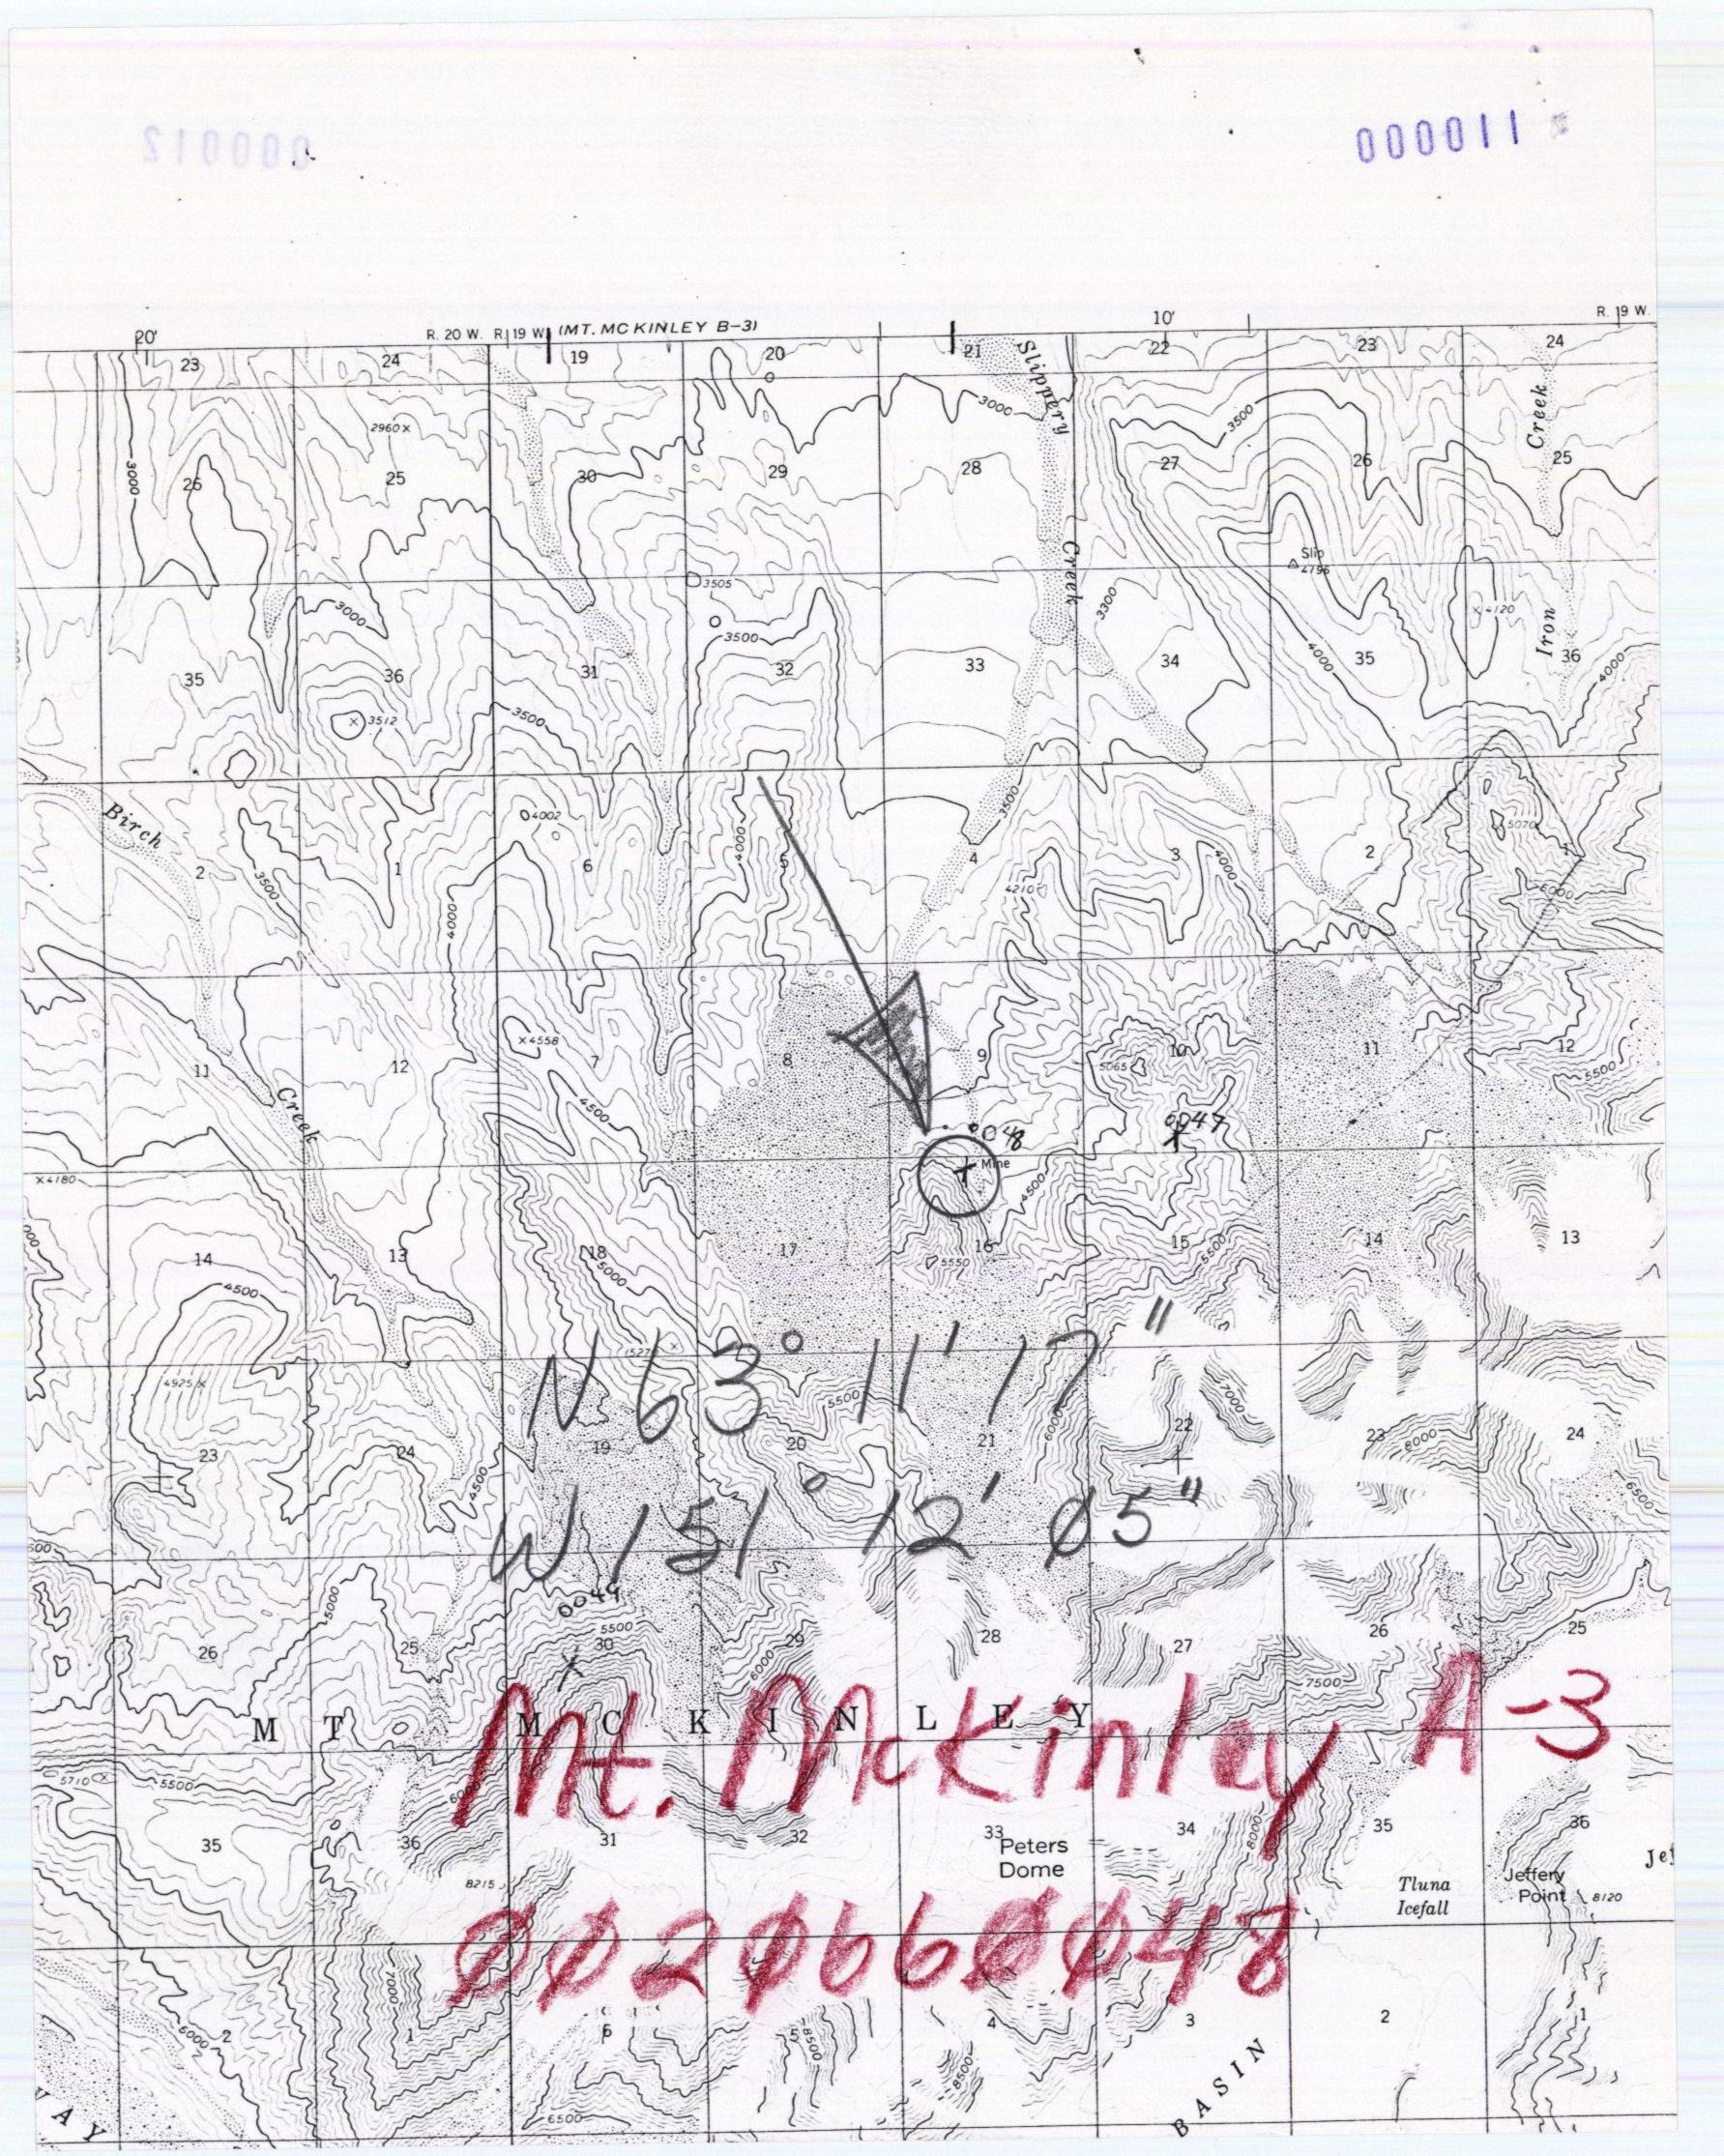 000012
000011
20'
R. 20 W. R. 19 W. (MT. MC KINLEY B-3)
10'
R. 19 W.
23 24 19 20 21 22 23 24
Slippery
3000
3500
Creek
2960
3000
26 25 30 29 28 27 26 25
Creek
Slip
4796
3505
3000
3300
4120
3500
Iron
4000
35 36 31 32 33 34 35 36
4000
3512
3500
3500
Birch
4002
4000
5070
2 1 6 5 4 3 2 1
3500
4210
4000
6000
4000
4558
11 12 7 8 9 10 11 12
5065
5500
4500
Creek
0048
0047
Mine
4180
4500
14 13 18 17 16 15 14 13
5000
5550
5500
4500
N 63° 11' 17"
4925
5500
6000
7000
23 24 19 20 21 22 23 24
8000
4500
6500
W 151° 12' Ø5"
0049
5000
5500
26 25 30 29 28 27 26 25
6000
7500
MT MCKINLEY
Mt. McKinley A-3
5710
5500
35 36 31 32 33 34 35 36
8000
Peters
Dome
8215
Tluna
Icefall
Jeffery
Point
8120
ØØ2Ø66ØØ48
7000
6000
2 1 6 5 4 3 2 1
8500
8500
BASIN
6500